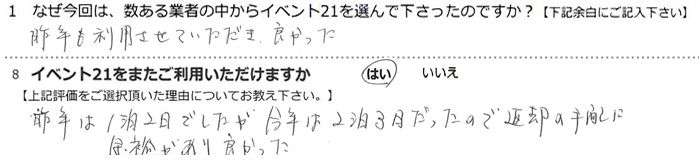 1 なぜ今回は、数ある業者の中からイベント21を選んで下さったのですか？【下記余白にご記入下さい】
昨年も利用させていただき、良かった
8 イベント21をまたご利用いただけますか はい いいえ
【上記評価をご選択頂いた理由についてお教え下さい。】
昨年は1泊2日でしたが今年は2泊3日だったので返却の手配に
余裕があり良かった